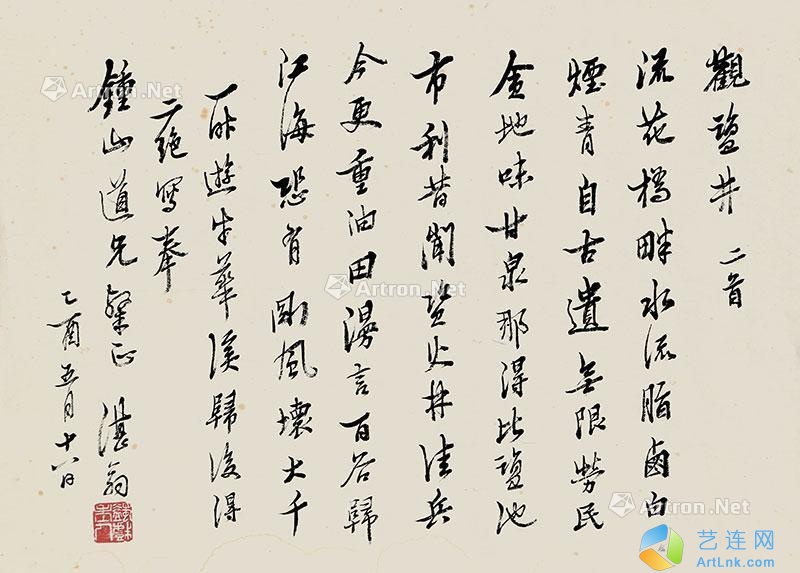 觀鹽井 二首
流花橋畔水流脂鹵白
煙青自古遺無限勞民
貪地味甘泉那得比鹽池
市利昔聞鹽火井佳兵
今更重油田漫言百谷歸
江海恐有剛風壞大千
一昨遊牛華溪歸後得
二絕寫奉
鍾山道兄粲正 湛翁
乙酉五月十六日
蠲戲老人
Artron.Net
Artron.Net
Artron.Net
Artron.Net
Artron.Net
艺连网
ArtLnk.Com